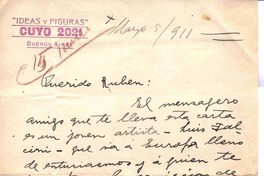 "IDEAS Y FIGURAS"
CUYO 2021
BUENOS AIRES
Mayo 5/911
Querido Ruben:
El mensagero
amigo que te lleva esta carta
es un joven artista - Luis Fal-
cini - que va á Europa lleno
de entusiasmos y á quien te